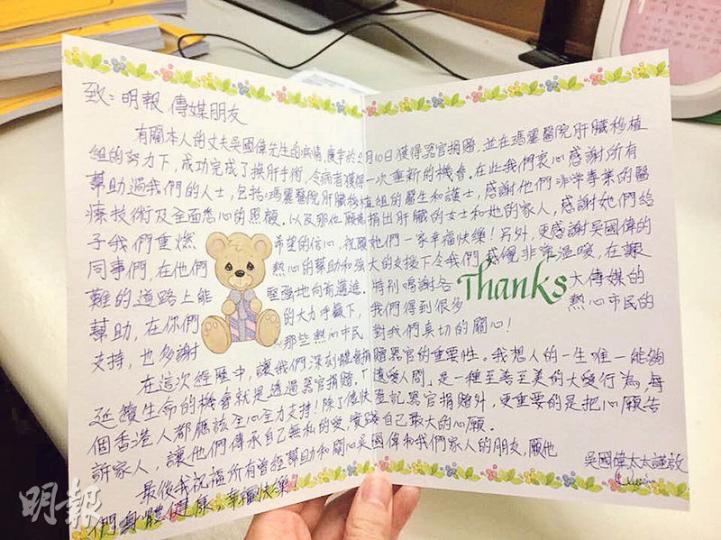 致：明報 傳媒朋友
有關本人的丈夫吳國偉先生的病情，慶幸於月10日獲得器官捐贈，並在瑪麗醫院肝臟移植
組的努力下，成功完成了換肝手術，令病者獲得一次重新的機會。在此我們衷心感謝所有
幫助過我們的人士，包括：瑪麗醫院肝臟移植組的醫生和護士，感謝他們非常專業的醫
療技術及全面悉心的照顧，以及那位願意捐出肝臟的女士和她的家人，感謝她們給
予我們重燃希望的信心，祝願她們一家幸福快樂！另外，更感謝吳國偉的
同事們，在他們熱心的幫助和強大的支援下令我們感覺非常溫暖，在艱
難的道路上能堅強地向前邁進。特別鳴謝各大傳媒的
Thanks
幫助，在你們的大力呼籲下，我們得到很多熱心市民的
支持，也多謝那些熱心市民對我們真切的關心！
在這次經歷中，讓我們深刻體會捐贈器官的重要性。我想人的一生唯一能夠
延續生命的機會就是透過器官捐贈。「遺愛人間」是一種至善至美的大愛行為，每
個香港人都應該全心全力支持！除了儘快登記器官捐贈外，更重要的是把心願告
訴家人，讓他們傳承自己無私的愛，實踐自己最大的心願。
最後我祝福所有曾經幫助和關心吳國偉和我們家人的朋友，願他
們身體健康，幸福快樂！
吳國偉太太謹啟
明報